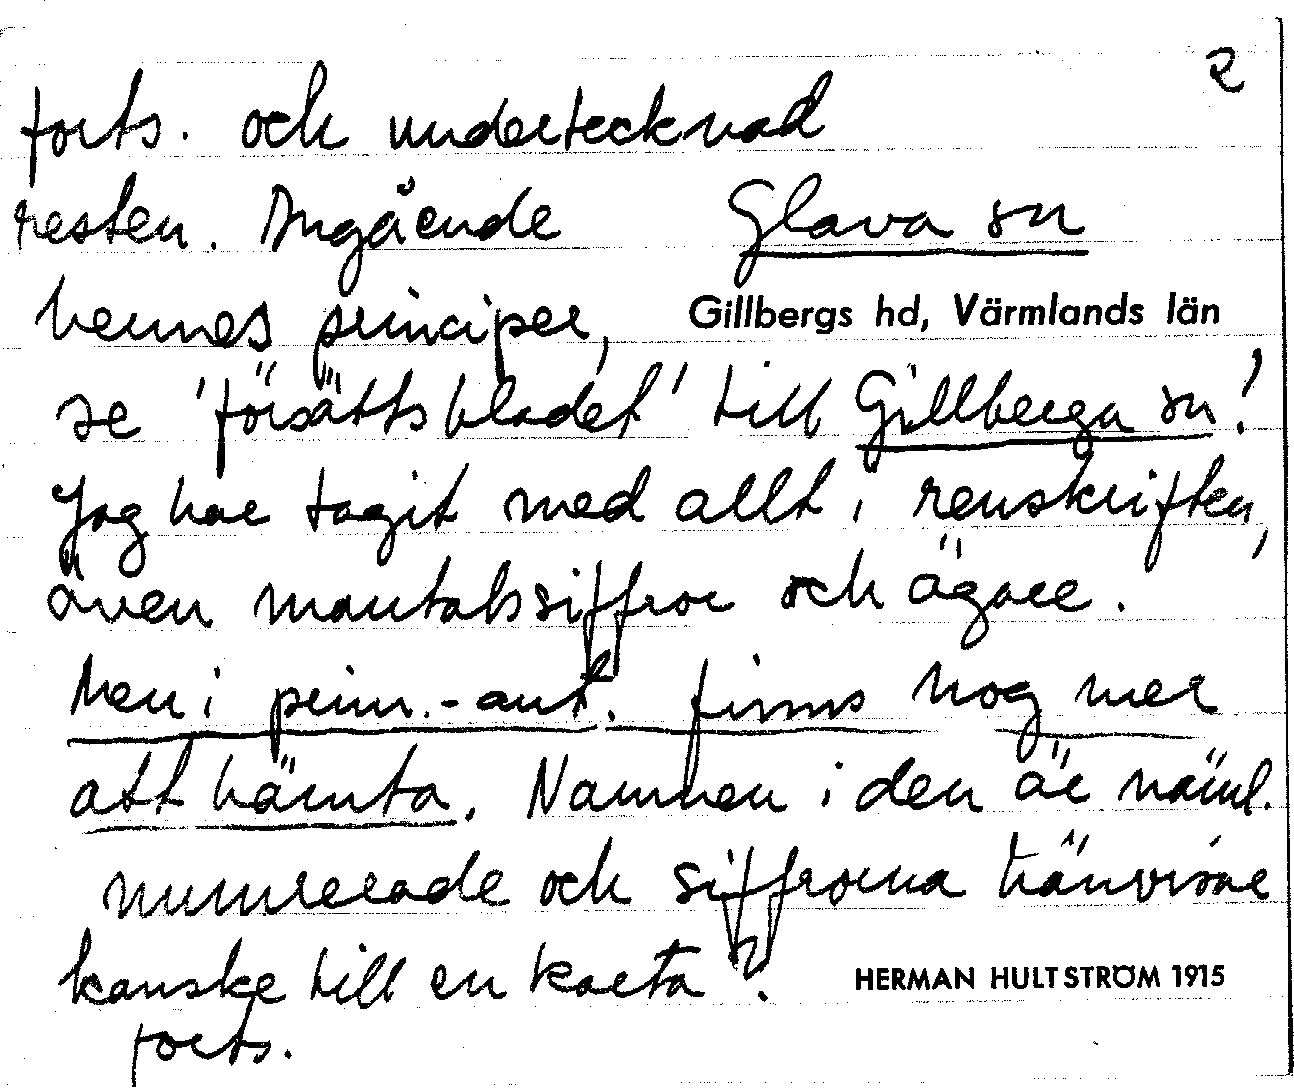 2
forts. och undertecknad
resten. Angående Glava sn
hennes principer, Gillbergs hd, Värmlands län
se 'försättsbladet' till Gillberga sn!
Jag har tagit med allt i renskriften,
även mantalssiffror och ägare.
Men i prim.-ant. finns nog mer
att hämta. Namnen i den är näml.
numrerade och siffrorna hänvisar
kanske till en karta?
HERMAN HULTSTRÖM 1915
forts.